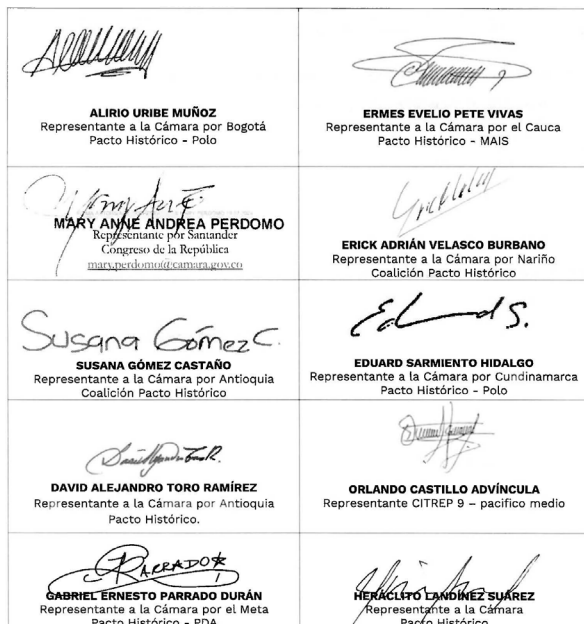 ALIRIO URIBE MUÑOZ
Representante a la Cámara por Bogotá
Pacto Histórico - Polo
ERMES EVELIO PETE VIVAS
Representante a la Cámara por el Cauca
Pacto Histórico - MAIS
MARY ANNE ANDREA PERDOMO
Representante por Santander
Congreso de la República
mary.perdomo@camara.gov.co
ERICK ADRIÁN VELASCO BURBANO
Representante a la Cámara por Nariño
Coalición Pacto Histórico
Susana Gómez C.
SUSANA GÓMEZ CASTAÑO
Representante a la Cámara por Antioquia
Coalición Pacto Histórico
Eduard S.
EDUARD SARMIENTO HIDALGO
Representante a la Cámara por Cundinamarca
Pacto Histórico - Polo
DAVID ALEJANDRO TORO RAMÍREZ
Representante a la Cámara por Antioquia
Pacto Histórico.
ORLANDO CASTILLO ADVÍNCULA
Representante CITREP 9 – pacifico medio
PARRADO
GABRIEL ERNESTO PARRADO DURÁN
Representante a la Cámara por el Meta
Pacto Histórico - PDA
HERÁCLITO LANDÍNEZ SUÁREZ
Representante a la Cámara
Pacto Histórico